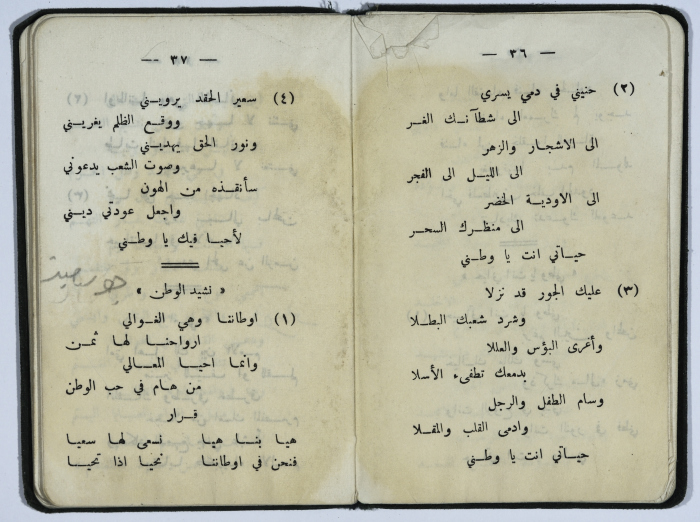 — ٣٦ —
(٢) حنيني في دمي يسري
الى شطآنـك الغـر
الى الاشجار والزهر
الى الليـل الى الفجر
الى الاودية الخضر
الى منظرك السحـر
حيـاتي انت يا وطـني
(٣) عليك الجور قد نزلا
وشرد شعبك البطـلا
وأغرى البؤس والعللا
بدمعك تطفيء الأسلا
وسام الطفل والرجل
وادمى القلب والمقـلا
حيـاتي انت يا وطـني
— ٣٧ —
(٤) سعير الحقد يرويـني
ووقـع الظلم يغريـني
ونور الحق يهديـني
وصوت الشعب يدعوني
سأنقـذه مـن الهون
واجعل عودتي ديـني
لأحيـا فيك يا وطـني
« نشيد الوطن »
(١) اوطاننـا وهي الغـوالي
ارواحنـا لهـا ثمـن
وانمـا احيـا المعـالي
من هـام في حب الوطن
قـرار
هيـا بنـا هيـا نسعى لهـا سعيـا
فنحن في اوطاننـا نحيـا اذا تحيـا